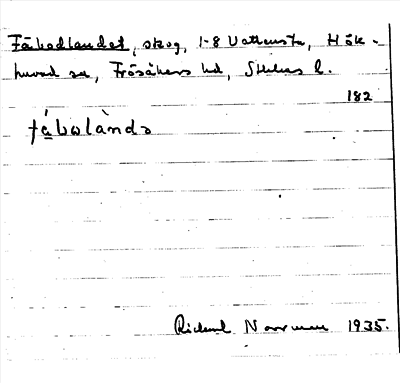 Fäbodlandet, skog, 1-8 Vattensta, Hök-
huvud sn, Frösåkers hd, Sthlms l.
182
fä̀bωlànd
Rickard Norrman 1935.